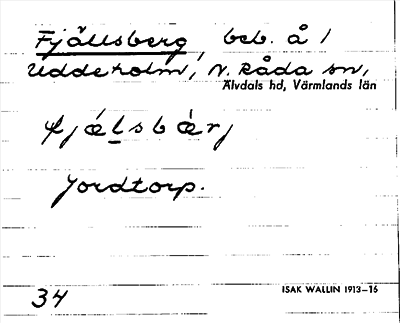 Fjällsberg, beb. å /
Uddeholm, N. Råda sn,
Älvdals hd, Värmlands län
fjǽlsbær̀j
Jordtorp.
34
ISAK WALLIN 1913–16